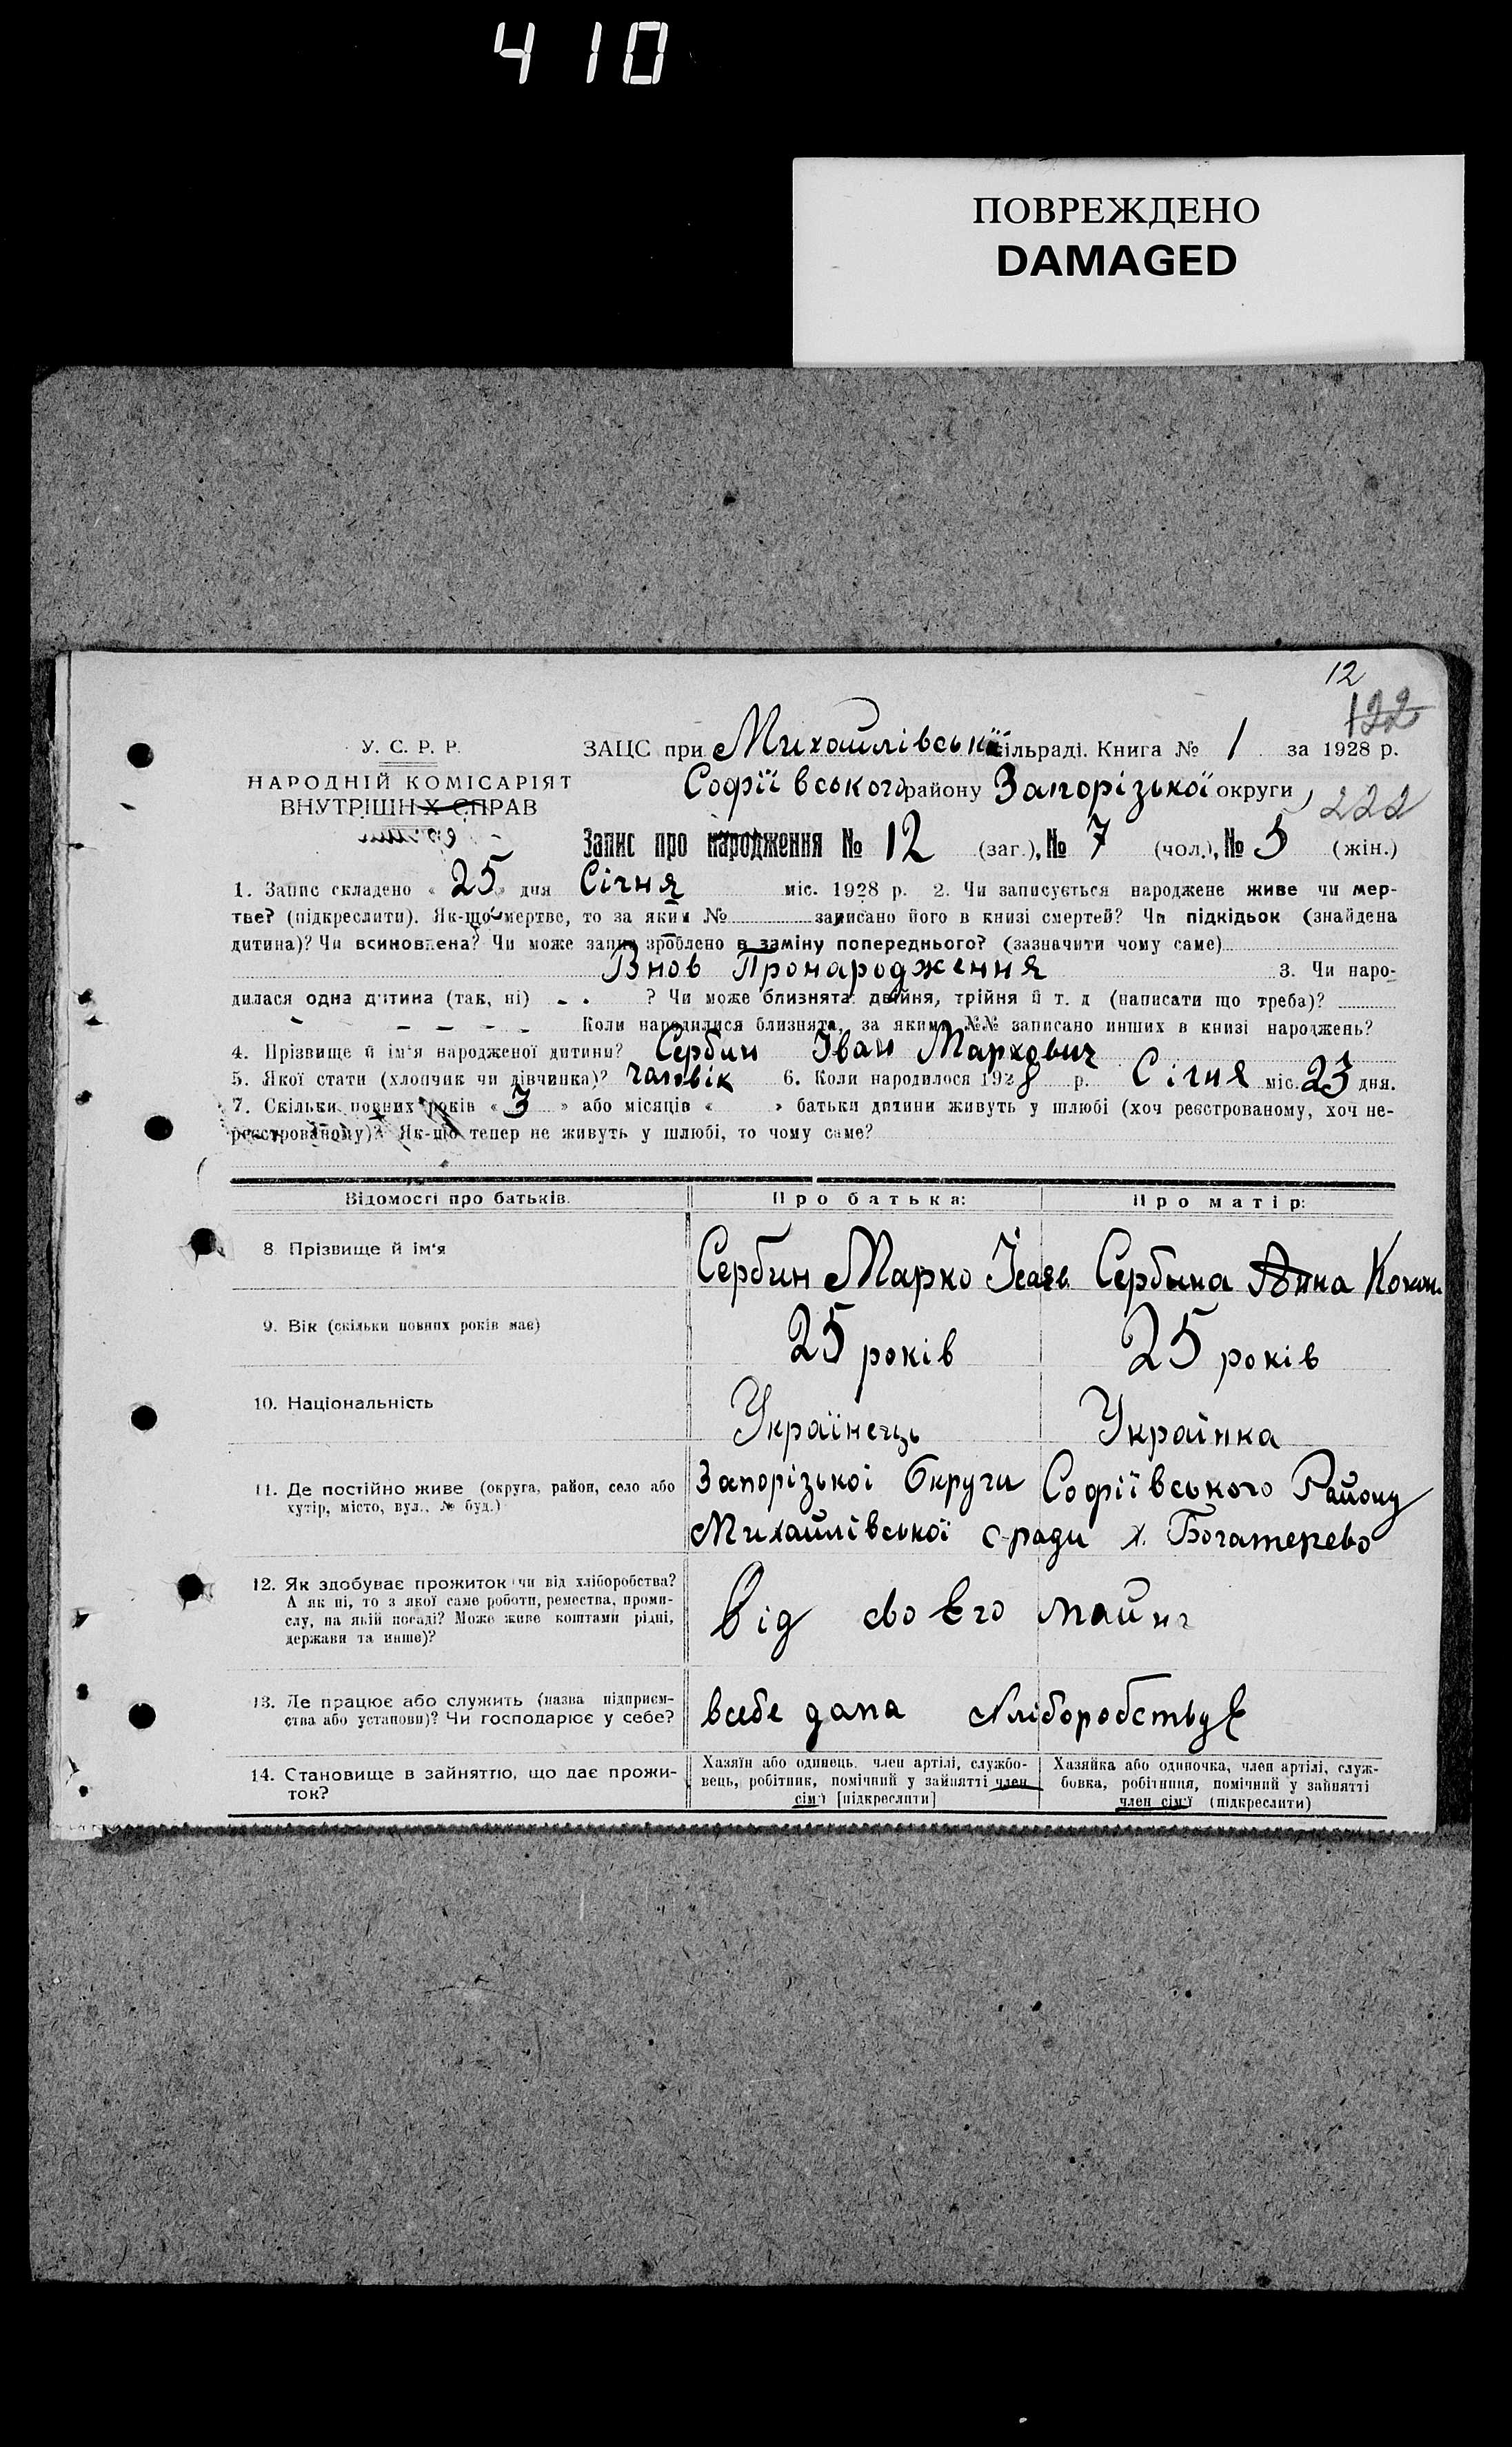 4 10
ПОВРЕЖДЕНО
DAMAGED
12
122
У. С. Р. Р.
НАРОДНІЙ КОМІСАРІЯТ
ВНУТРІШНІХ СПРАВ
ЗАЦС при Михайлівській сільраді. Книга № 1 за 1928 р.
Софіївського району Запорізької округи
222
Запис про народження № 12 (заг.), № 7 (чол.), № 5 (жін.)
1. Запис складено « 25 » дня Січня міс. 1928 р. 2. Чи записується народжене живе чи мер-
тве? (підкреслити). Як-що мертве, то за яким № записано його в книзі смертей? Чи підкідьок (знайдена
дитина)? Чи всиновлена? Чи може запис зроблено в заміну попереднього? (зазначити чому саме)
Внов Пронародження 3. Чи наро-
дилася одна дитина (так, ні) - - ? Чи може близнята: двійня, трійня й т. д (написати що треба)?
- - - - - Коли народилися близнята, за якими №№ записано инших в книзі народжень?
4. Прізвище й ім'я народженої дитини? Сербин Іван Маркович
5. Якої стати (хлопчик чи дівчинка)? чаловік 6. Коли народилося 1928 р. Січня міс. 23 дня.
7. Скільки повних років « 3 » або місяців « » батьки дитини живуть у шлюбі (хоч реєстрованому, хоч не-
реєстрованому)? Як-що тепер не живуть у шлюбі, то чому саме?
Відомості про батьків. Про батька: Про матір:
8. Прізвище й ім'я Сербин Марко Ісаєв Сербина Анна
9. Вік (скільки повних років має) 25 років 25 років
10. Національність Українець Українка
11. Де постійно живе (округа, район, село або
хутір, місто, вул., № буд.)
Запорізької Округи Софіївського Району
Михайлівської с-ради х. Богатерево
12. Як здобуває прожиток чи від хліборобства?
А як ні, то з якої саме роботи, ремества, проми-
слу, на якій посаді? Може живе коштами рідні,
держави та инше)?
Від своЕго майна
13. Де працює або служить (назва підприєм-
ства або установи)? Чи господарює у себе?
всебе дома хліборобствуЕ
14. Становище в зайняттю, що дає прожи-
ток?
Хазяїн або одинець, член артілі, службо-
вець, робітник, помічний у зайнятті член
сім'ї [підкреслити]
Хазяйка або одиночка, член артілі, служ-
бовка, робітниця, помічний у зайнятті
член сім'ї (підкреслити)